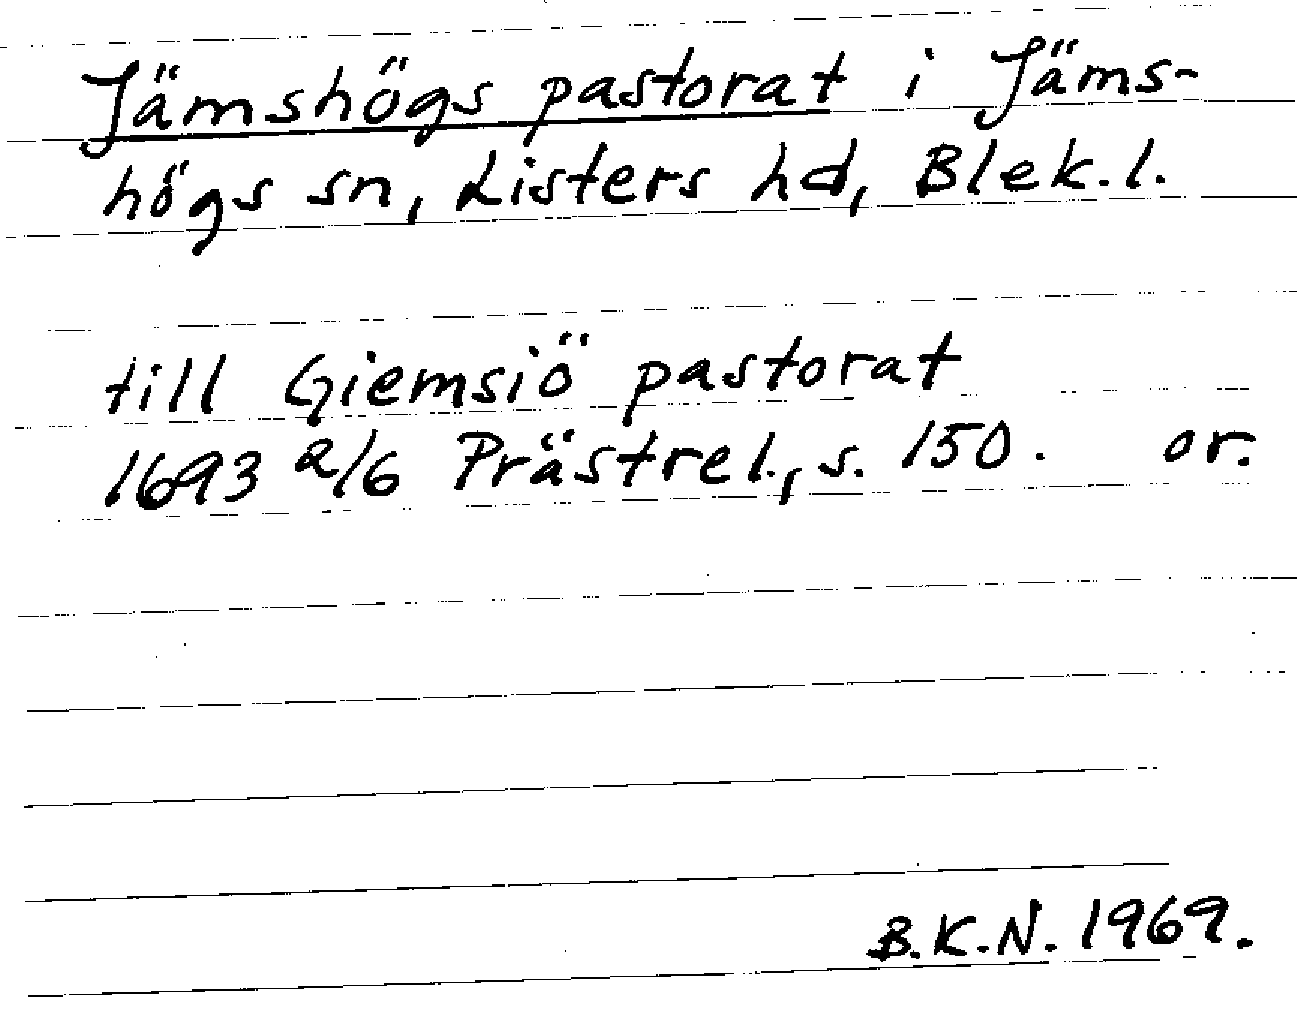 Jämshögs pastorat i Jäms-
högs sn, Listers hd, Blek. l.
till Giemsiö pastorat
1693 2/6 Prästrel., s. 150. or.
B.K.N. 1969.